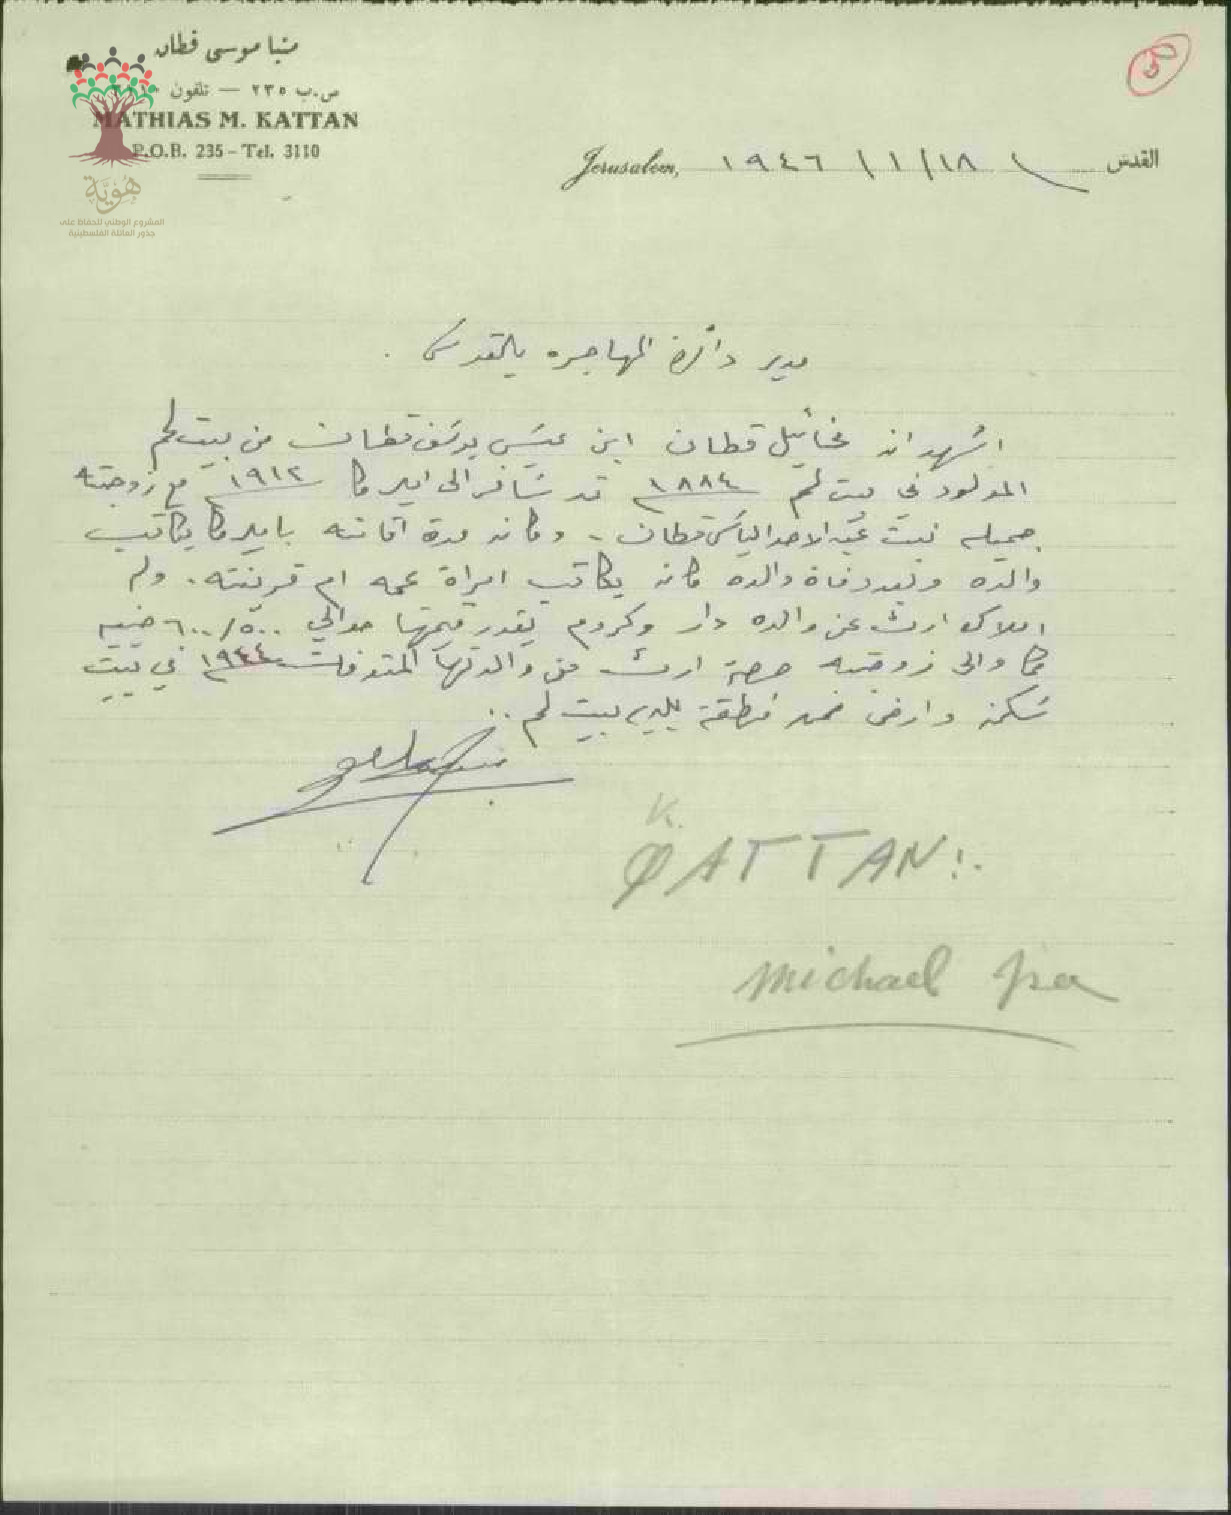 متيا موسى قطان
ص.ب ٢٣٥ — تلفون
MATHIAS M. KATTAN
P.O.B. 235 – Tel. 3110
هُوِيَّة
المشروع الوطني للحفاظ على
جذور العائلة الفلسطينية
Jerusalem, ١٩٤٦ /١/١٨ القدس
مدير دائرة المهاجره بالقدس .
اشهد ان مخائيل قطان ابن عيسى يوسف قطان من بيت لحم
المولود في بيت لحم ١٨٨٤ قد سافر الى اميركا ١٩١٢ مع زوجته
جميله بنت عبد الاحد الياس قطان . وكان مدة اقامته باميركا يكاتب
والده وبعد وفاة والده كان يكاتب امرأة عمه ام قرينته . ولم
املاك ارث عن والده دار وكروم يقدر قيمتها حوالي ٥٠٠/٦٠٠ جنيه
كما والى زوجته حصة ارث من والدتها المتوفات ١٩٤٤ في بيت
سكن وارض ضمن منطقة بلدية بيت لحم ..
K.
QATTAN :.
Michael Isa